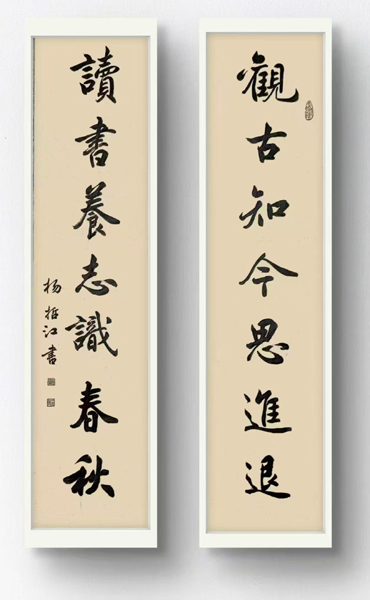 觀古知今思進退
讀書養志識春秋
杨振江書